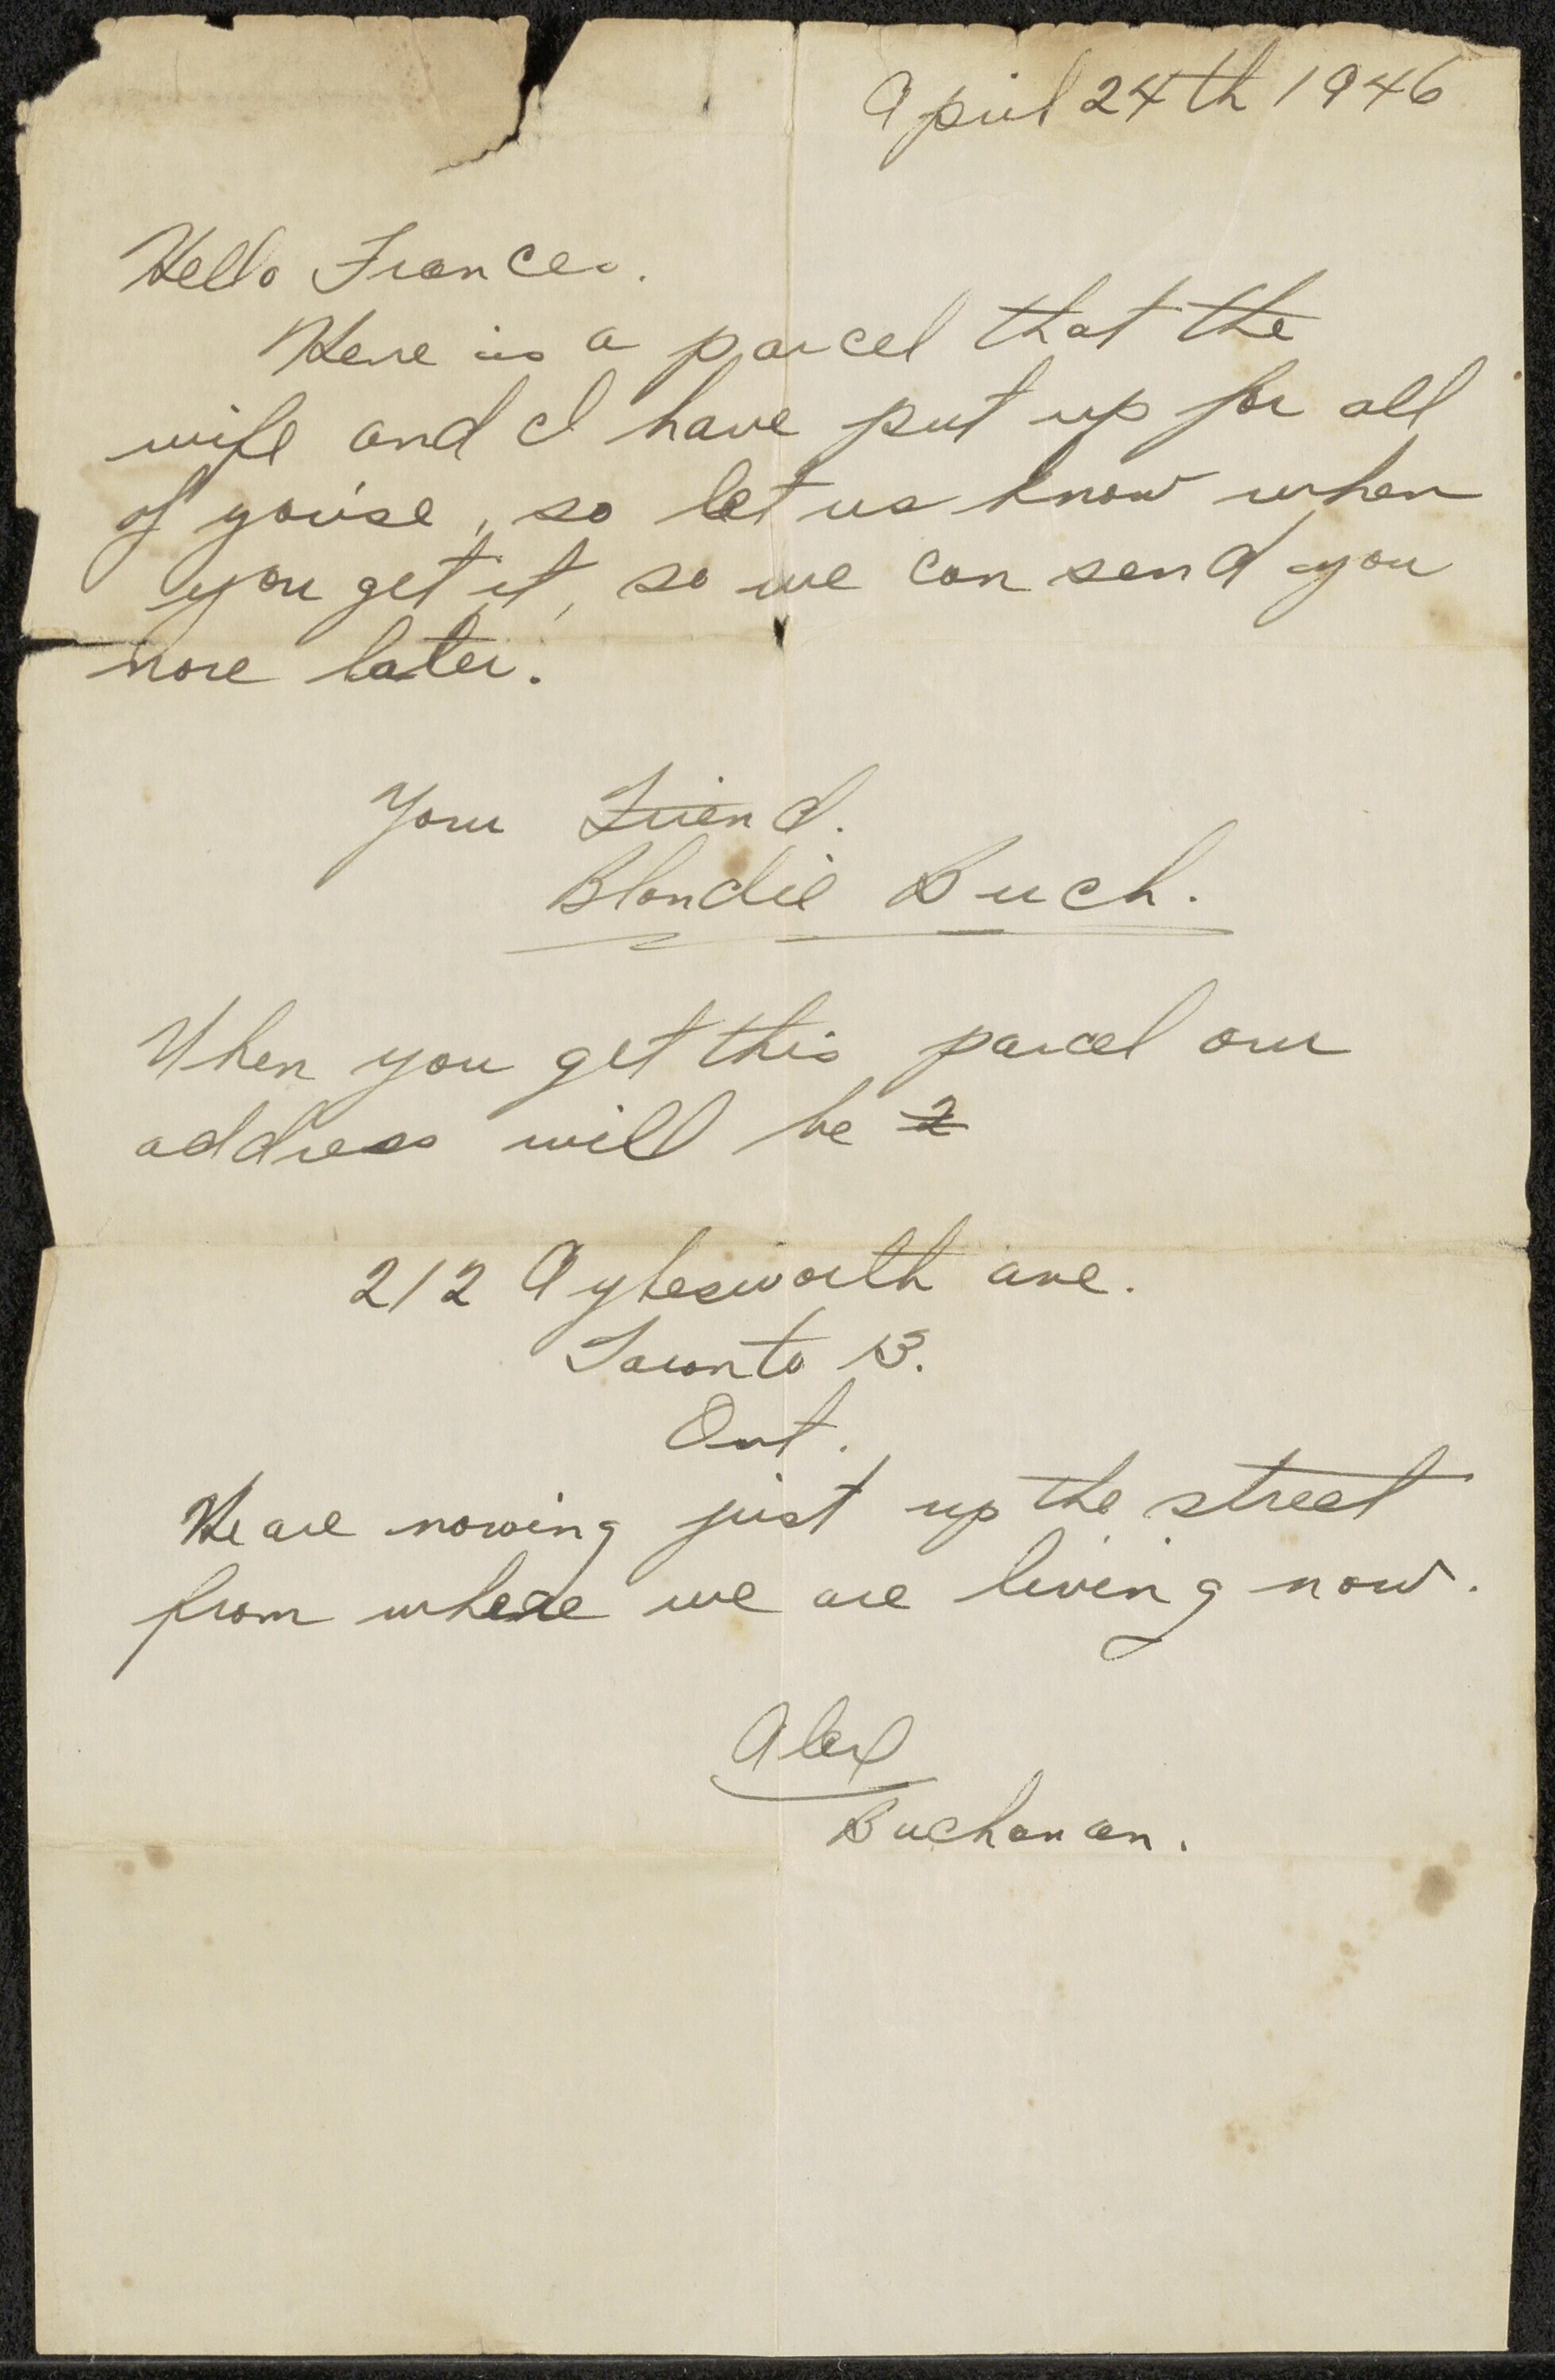 April 24th 1946
Hello Frances.
Here is a parcel that the
wife and I have put up for all
of youse, so let us know when
you get it, so we can send you
more later.
Your Friend.
Blondie Buch.
When you get this parcel our
address will be 2
212 Aylesworth ave.
Toronto 13.
Ont.
We are moving just up the street
from where we are living now.
Alex
Buchanan.